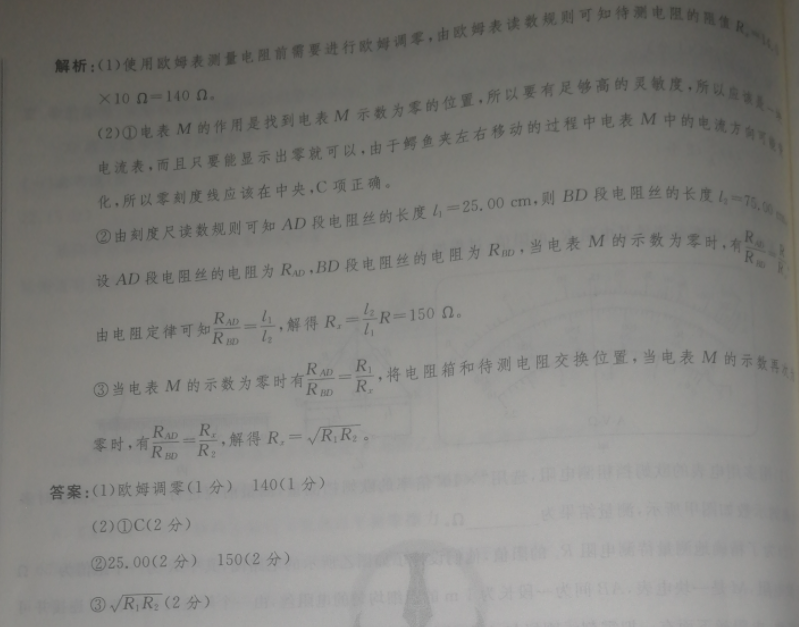 解析:(1)使用欧姆表测量电阻前需要进行欧姆调零,由欧姆表读数规则可知待测电阻的阻值 Rₓ=14.0
×10 Ω=140 Ω。
(2)①电表 M 的作用是找到电表 M 示数为零的位置,所以要有足够高的灵敏度,所以应该是一种
电流表,而且只要能显示出零就可以,由于鳄鱼夹左右移动的过程中电表 M 中的电流方向可能变
化,所以零刻度线应该在中央,C 项正确。
②由刻度尺读数规则可知 AD 段电阻丝的长度 l₁=25.00 cm,则 BD 段电阻丝的长度 l₂=75.00
设 AD 段电阻丝的电阻为 R_AD,BD 段电阻丝的电阻为 R_BD,当电表 M 的示数为零时,有 R_AD/R_BD=
由电阻定律可知 R_AD/R_BD=l₁/l₂,解得 Rₓ=l₂/l₁ R=150 Ω。
③当电表 M 的示数为零时有 R_AD/R_BD=R₁/Rₓ,将电阻箱和待测电阻交换位置,当电表 M 的示数再次为
零时,有 R_AD/R_BD=Rₓ/R₂,解得 Rₓ=√(R₁R₂)。
答案:(1)欧姆调零(1 分) 140(1 分)
(2)①C(2 分)
②25.00(2 分) 150(2 分)
③√(R₁R₂)(2 分)